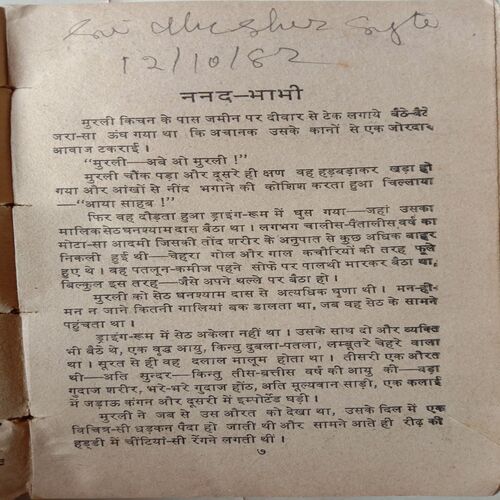 12/10/82
ननद—भाभी
मुरली किचन के पास जमीन पर दीवार से टेक लगाये बैठे-बैठे
जरा-सा ऊंघ गया था कि अचानक उसके कानों से एक जोरदार
आवाज टकराई।
"मुरली—अबे ओ मुरली !"
मुरली चौंक पड़ा और दूसरे ही क्षण वह हड़बड़ाकर खड़ा हो
गया और आंखों से नींद भगाने की कोशिश करता हुआ चिल्लाया
—"आया साहब !"
फिर वह दौड़ता हुआ ड्राइंग-रूम में घुस गया—जहां उसका
मालिक सेठ घनश्याम दास बैठा था। लगभग चालीस-पैंतालीस वर्ष का
मोटा-सा आदमी जिसकी तोंद शरीर के अनुपात से कुछ अधिक बाहर
निकली हुई थी—चेहरा गोल और गाल कचौरियों की तरह फूले
हुए थे। वह पतलून-कमीज पहने सोफे पर पालथी मारकर बैठा था,
बिल्कुल इस तरह—जैसे अपने थल्ले पर बैठा हो।
मुरली को सेठ घनश्याम दास से अत्यधिक घृणा थी। मन-ही-
मन न जाने कितनी गालियां बक डालता था, जब वह सेठ के सामने
पहुंचता था।
ड्राइंग-रूम में सेठ अकेला नहीं था। उसके साथ दो और व्यक्ति
भी बैठे थे, एक वृद्ध आयु, किन्तु दुबला-पतला, लम्बूतरे चेहरे वाला
था। सूरत से ही वह दलाल मालूम होता था। तीसरी एक औरत
थी—अति सुन्दर—किन्तु तीस-बत्तीस वर्ष की आयु की—बड़ा
गुदाज शरीर, भरे-भरे गुदाज होंठ, अति मूल्यवान साड़ी, एक कलाई
में जड़ाऊ कंगन और दूसरी में इम्पोर्टेड घड़ी।
मुरली ने जब से उस औरत को देखा था, उसके दिल में एक
विचित्र-सी धड़कन पैदा हो जाती थी और सामने आते ही रीढ़ की
हड्डी में चींटियां-सी रेंगने लगती थीं।
७